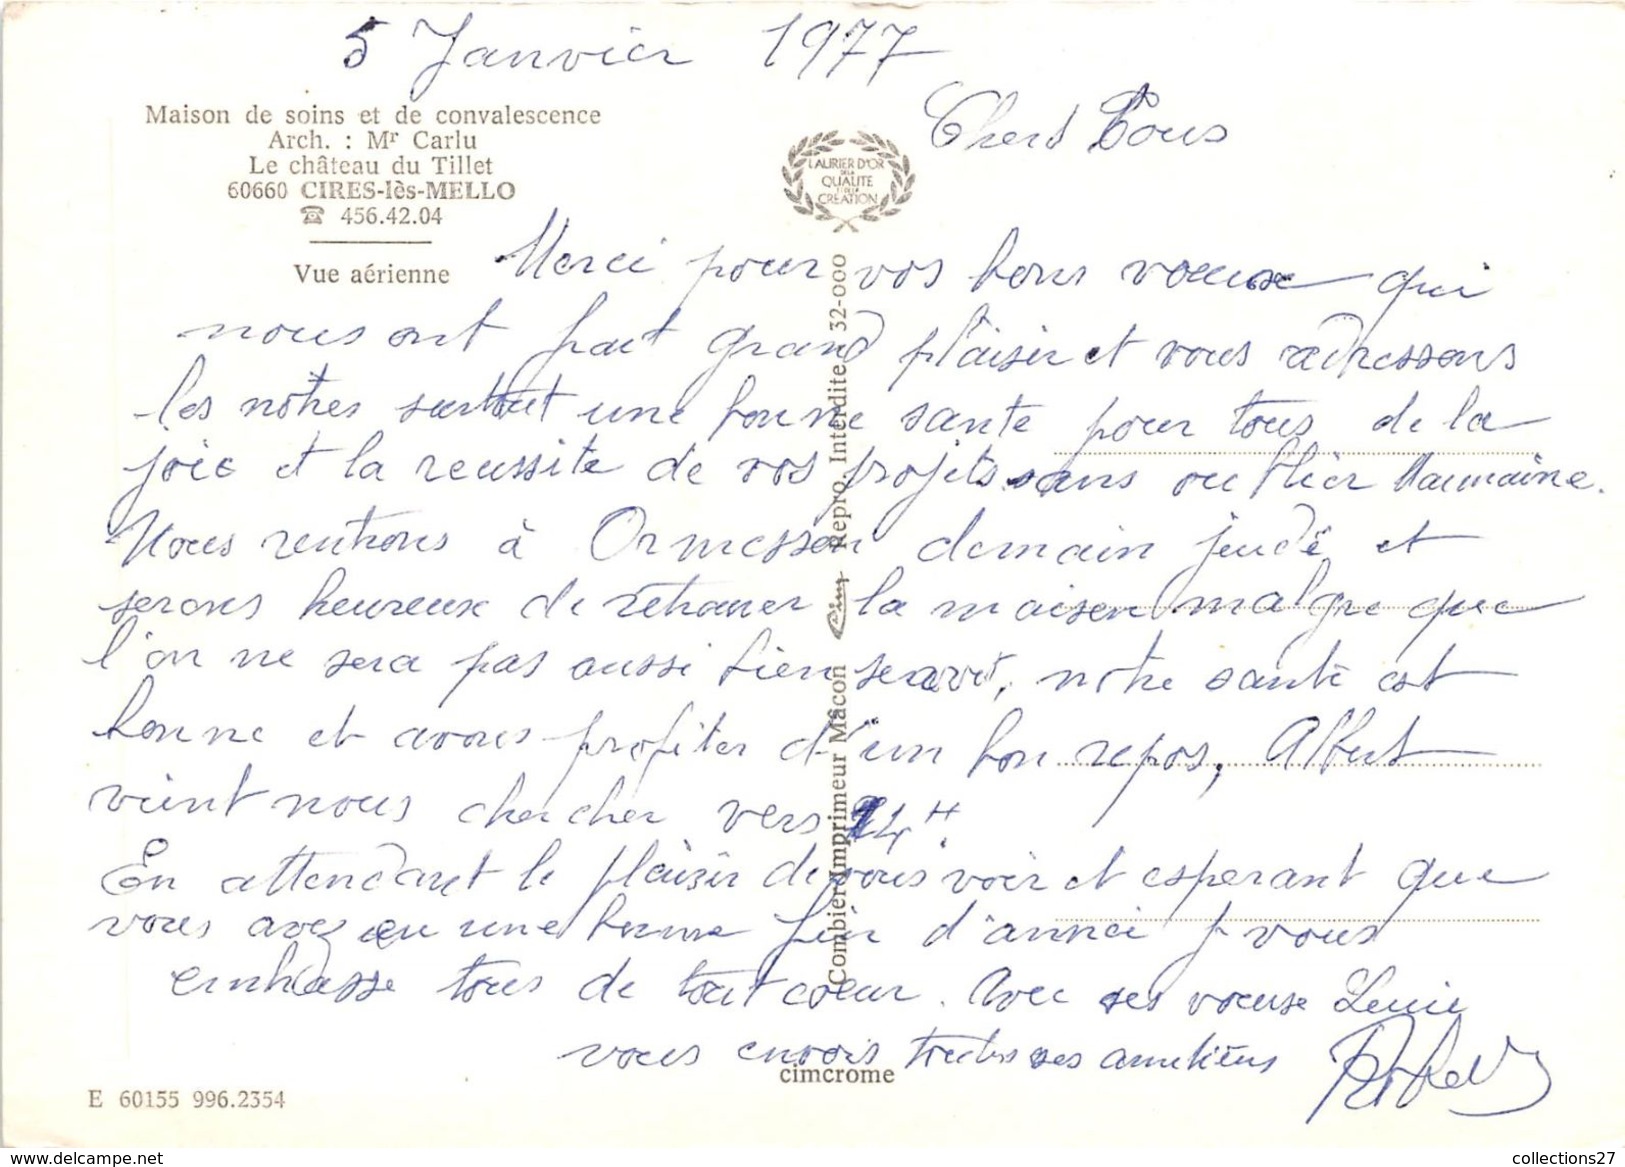 5 Janvier 1977
Maison de soins et de convalescence
Arch. : Mr Carlu
Le château du Tillet
60660 CIRES-lès-MELLO
☎ 456.42.04
Vue aérienne
LAURIER D'OR
DE LA
QUALITE
ET DE LA
CREATION
Chers Tous
Merci pour vos bons voeuxe qui
nous ont fait grand plaisir et vous adressons
les nôtres surtout une bonne sante pour tous de la
joie et la reussite de vos projets sans oublier
Nous rentrons à Ormesson demain jeudi et
serons heureux de retrouver la maison malgre que
l'on ne sera pas aussi bien servi, notre santé est
bonne et avons profiter d'un bon repos, Albert
vient nous chercher vers 14 H.
En attendant le plaisir de vous voir et esperant que
vous avez eu une bonne fin d'année je vous
embrasse tous de tout coeur. Avec ses voeuxe
vous envois toutes ses amitiéns Robert
Combier Imprimeur Mâcon Cim Repro. Interdite 32-000
cimcrome
E 60155 996.2354
collections27